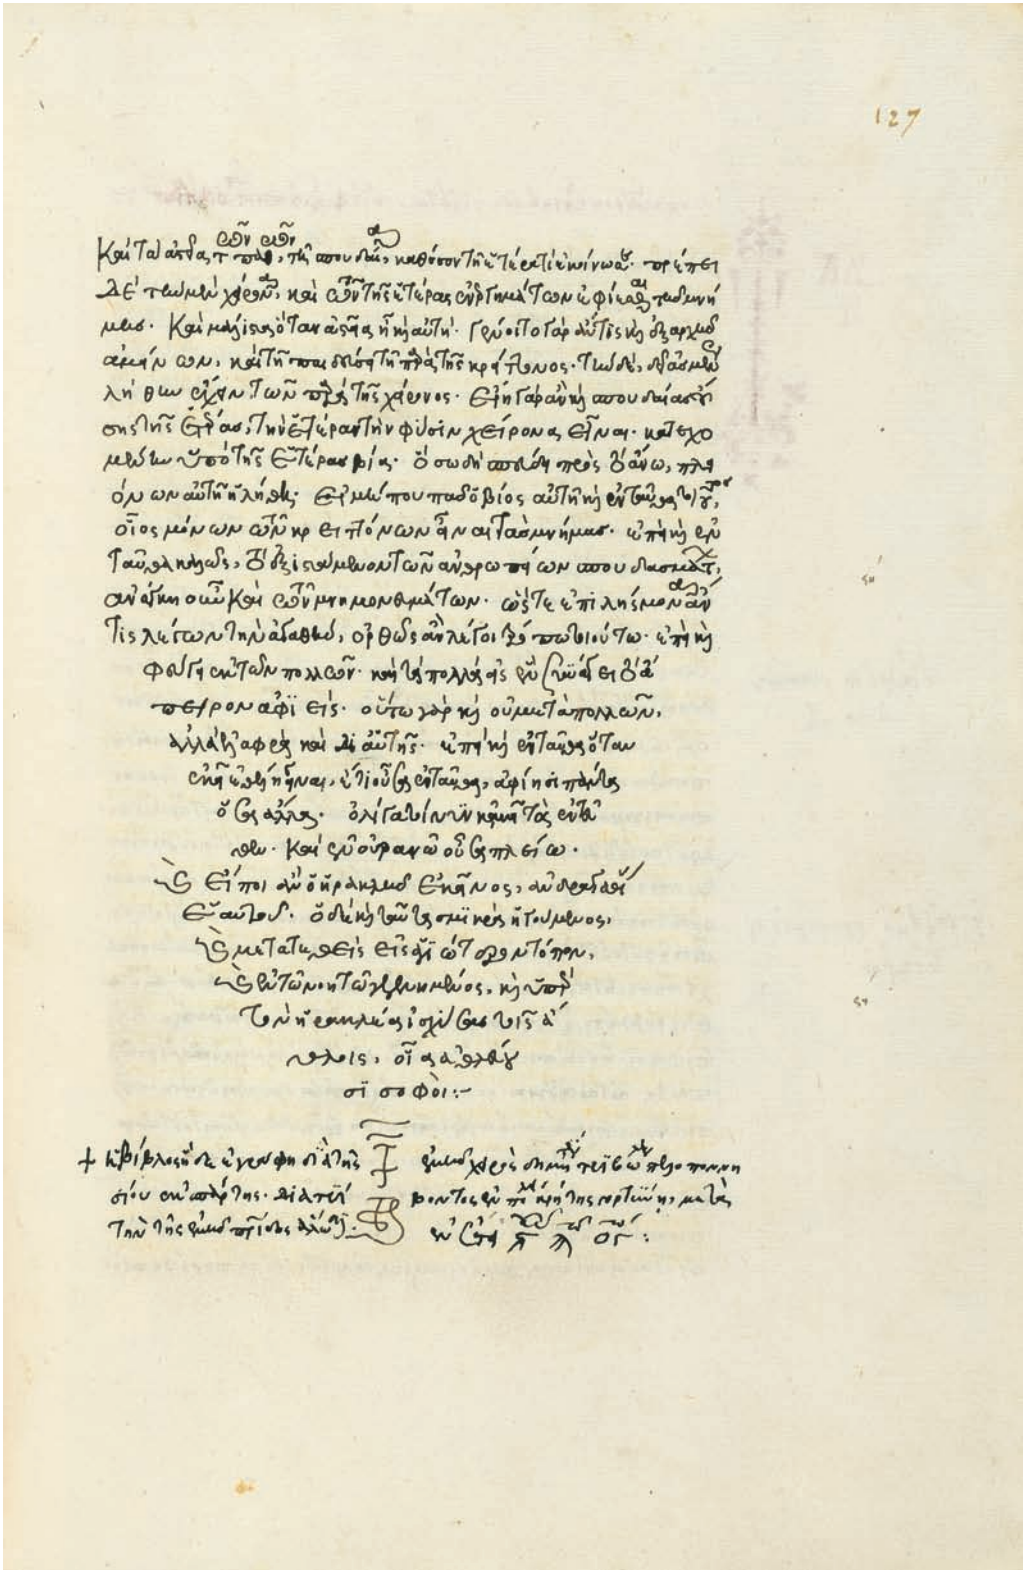 127
Καὶ τὰ ἀστεῖα τῶν παθῶν, τῇ σπουδαίᾳ, καθόσον τῇ ἑτέρα τι ἐκοινώνησε. πρέπει
δὲ τὴν μὲν χείρονα, καὶ τῶν τῆς ἑτέρας ἐνεργημάτων ἐφίεσθαι τῆς μνή
μης. Καὶ μάλιστα ὅταν ἀστεία ἦ καὶ αὐτή. Γένοιτο γὰρ ἄν τις καὶ ἐξ ἀρχῆς
ἀμείνων, καὶ τῇ παιδεύσει τῇ παρὰ τῆς κρείττονος. τὴν δὲ, δεῖ ἀσμένως
λήθην ἔχειν τῶν παρὰ τῆς χείρονος. Εἴη γὰρ ἂν καὶ σπουδαίας οὔ
σης τῆς ἑτέρας, τὴν ἑτέραν τὴν φύσιν χείρονα εἶναι. κατεχο
μένην ὑπὸ τῆς ἑτέρας βίᾳ. ὅσω δὴ σπεύδει πρὸς τὸ ἄνω, πλει
όνων αὐτῇ ἡ λήθη. Εἰ μή που πᾶς ὁ βίος αὐτῇ καὶ ἐνταῦθα τοιοῦτος,
οἷος μόνων τῶν κρειττόνων εἶναι τὰς μνήμας. ἐπεὶ καὶ ἐν
ταῦθα καλῶς, τὸ ἐξιστάμενον τῶν ἀνθρωπείων σπουδασμάτων,
ἀνάγκη οὖν καὶ τῶν μνημονευμάτων. ὥστε ἐπιλήσμονα ἄν
τις λέγων τὴν ἀγαθὴν, ὀρθῶς ἂν λέγοι τρόπω τοιούτω. ἐπεὶ καὶ
φεύγει ἐκ τῶν πολλῶν. καὶ τὰ πολλὰ εἰς ἓν συνάγει τὸ ἄ
πειρον ἀφϊείς. οὕτω γὰρ καὶ οὐ μετὰ πολλῶν,
ἀλλὰ ἐλαφρὰ καὶ δι αὑτῆς. ἐπεὶ καὶ ἐνταῦθα ὅταν
ἐκεῖ ἐθέλη εἶναι, ἔτι οὖσα ἐνταῦθα, ἀφίησι πάντα
ὅσα ἄλλα. ὀλίγα τοίνυν κἀκεῖ τὰ ἐντεῦ
θεν. Καὶ ἐν οὐρανῶ οὖσα πλείω.
Καὶ εἴποι ἂν ὁ ἡρακλῆς ἐκεῖνος, ἀνδραγαθίας
ἑαυτοῦ. ὁ δὲ καὶ ταῦτα σμϊκρὰ ἡγούμενος,
καὶ μετατεθεὶς εἰς ἁγϊώτερον τόπον,
καὶ ἐν τῶ νοητῶ γεγενημένος, καὶ ὑπὲρ
τὸν ἡρακλέα ἰσχύσας τοῖς ἄ
θλοις, οἷα ἀθλεύου
σϊ σοφοὶ:~
+ ἡ βίβλος ἥδε ἐγράφη διὰ τῆς ἐμοῦ χειρὸς δημητρίου τρϊβώλη πελοποννη
σίου ἐκ σπάρτης. διατρί βοντος ἐν κρήτης γορτύνη, μετὰ
τὴν τῆς ἐμοῦ πατρίδος ἅλωσιν. ἐν ἔτει